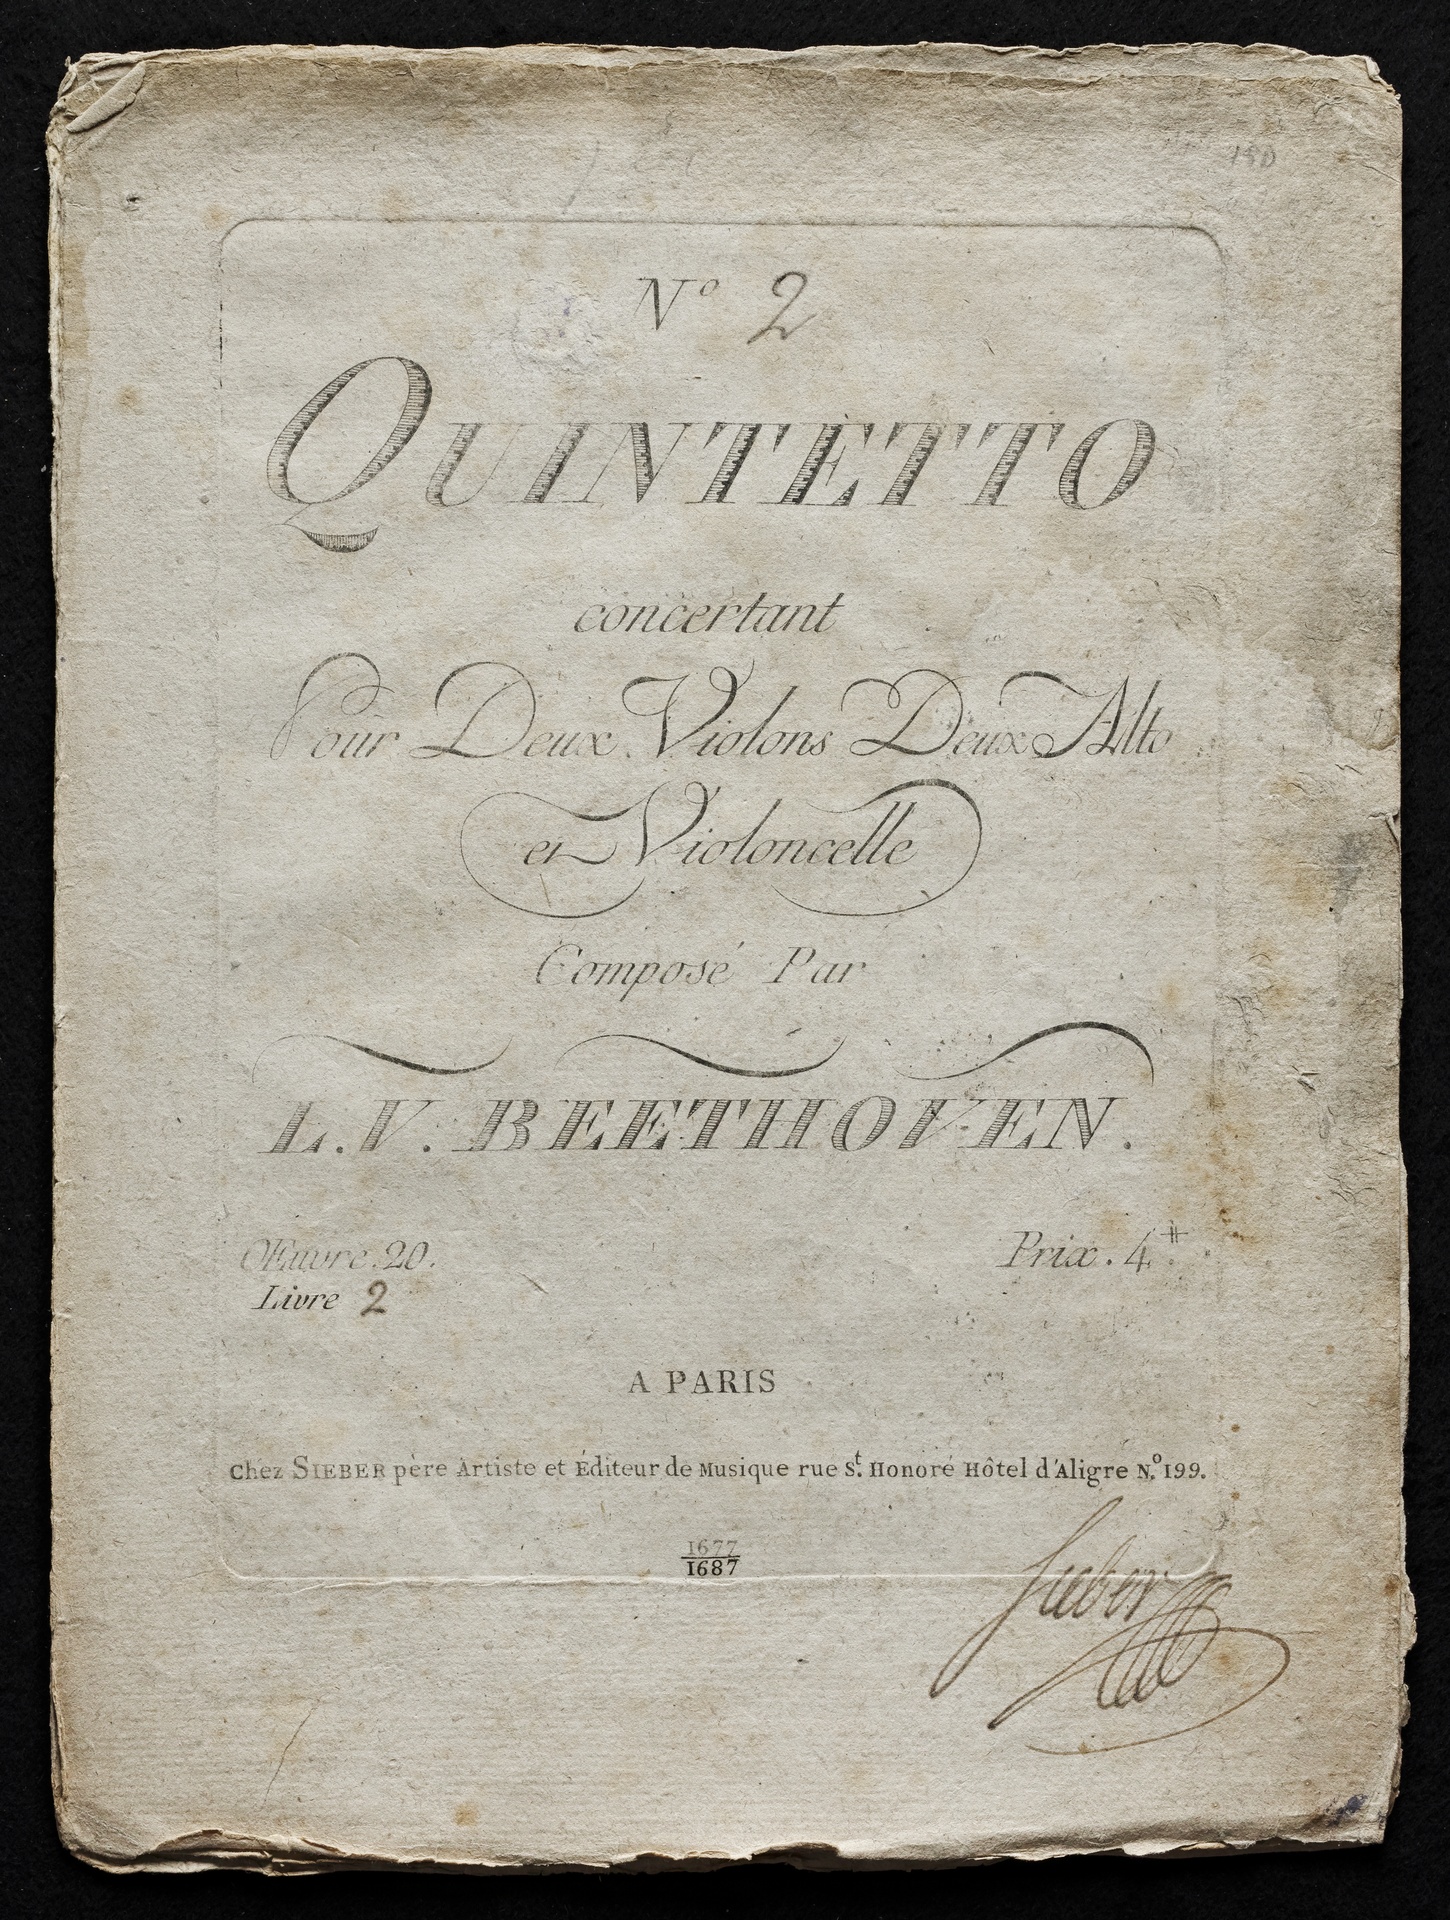 190
Nº 2
QUINTETTO
concertant
Pour Deux Violons Deux Alto
et Violoncelle
Composé Par
L.V. BEETHOVEN.
Œuvre.20. Prix.4.#
Livre 2
A PARIS
Chez SIEBER père Artiste et Éditeur de Musique rue St. Honoré Hôtel d'Aligre N.º 199.
1677
1687
Sieber